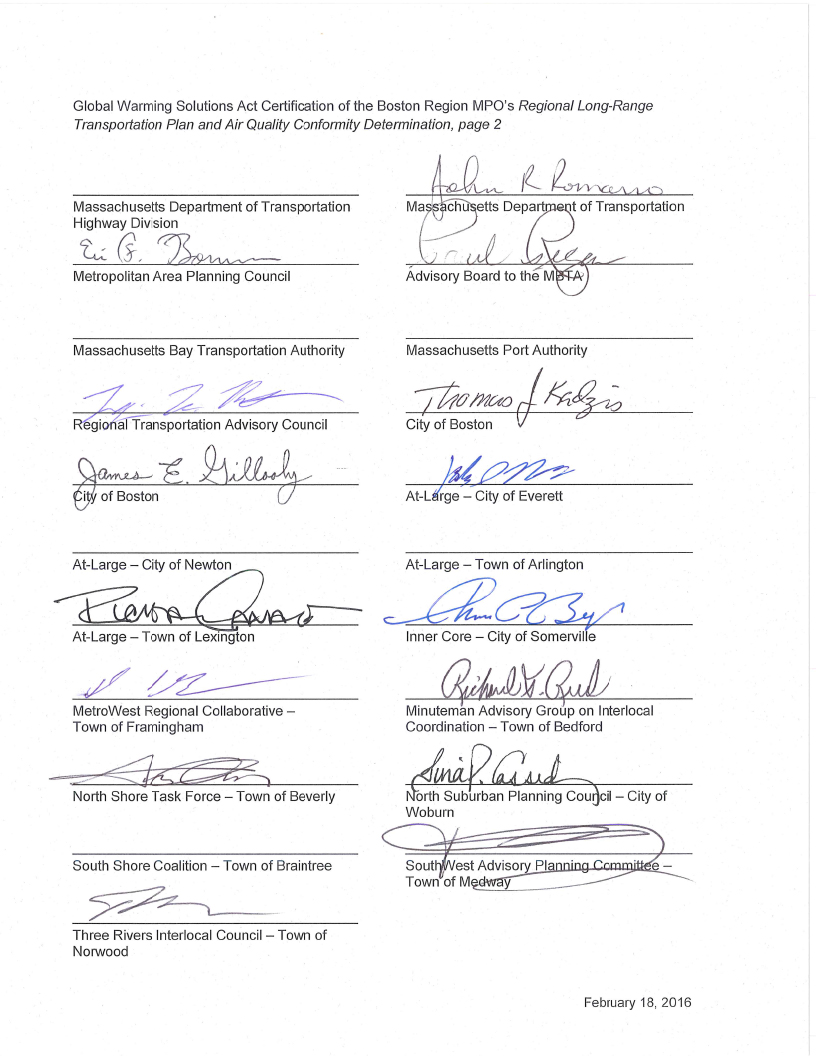 Global Warming Solutions Act Certification of the Boston Region MPO's Regional Long-Range
Transportation Plan and Air Quality Conformity Determination, page 2
John R Romano
Massachusetts Department of Transportation
Highway Division
Massachusetts Department of Transportation
Eric G. Bourassa
Paul Regan
Metropolitan Area Planning Council
Advisory Board to the MBTA
Massachusetts Bay Transportation Authority
Massachusetts Port Authority
Thomas J Kadzis
Regional Transportation Advisory Council
City of Boston
James E. Gillooly
City of Boston
At-Large – City of Everett
At-Large – City of Newton
At-Large – Town of Arlington
At-Large – Town of Lexington
Inner Core – City of Somerville
Richard Reed
MetroWest Regional Collaborative –
Town of Framingham
Minuteman Advisory Group on Interlocal
Coordination – Town of Bedford
Tina P. Cassidy
North Shore Task Force – Town of Beverly
North Suburban Planning Council – City of
Woburn
South Shore Coalition – Town of Braintree
SouthWest Advisory Planning Committee –
Town of Medway
Three Rivers Interlocal Council – Town of
Norwood
February 18, 2016